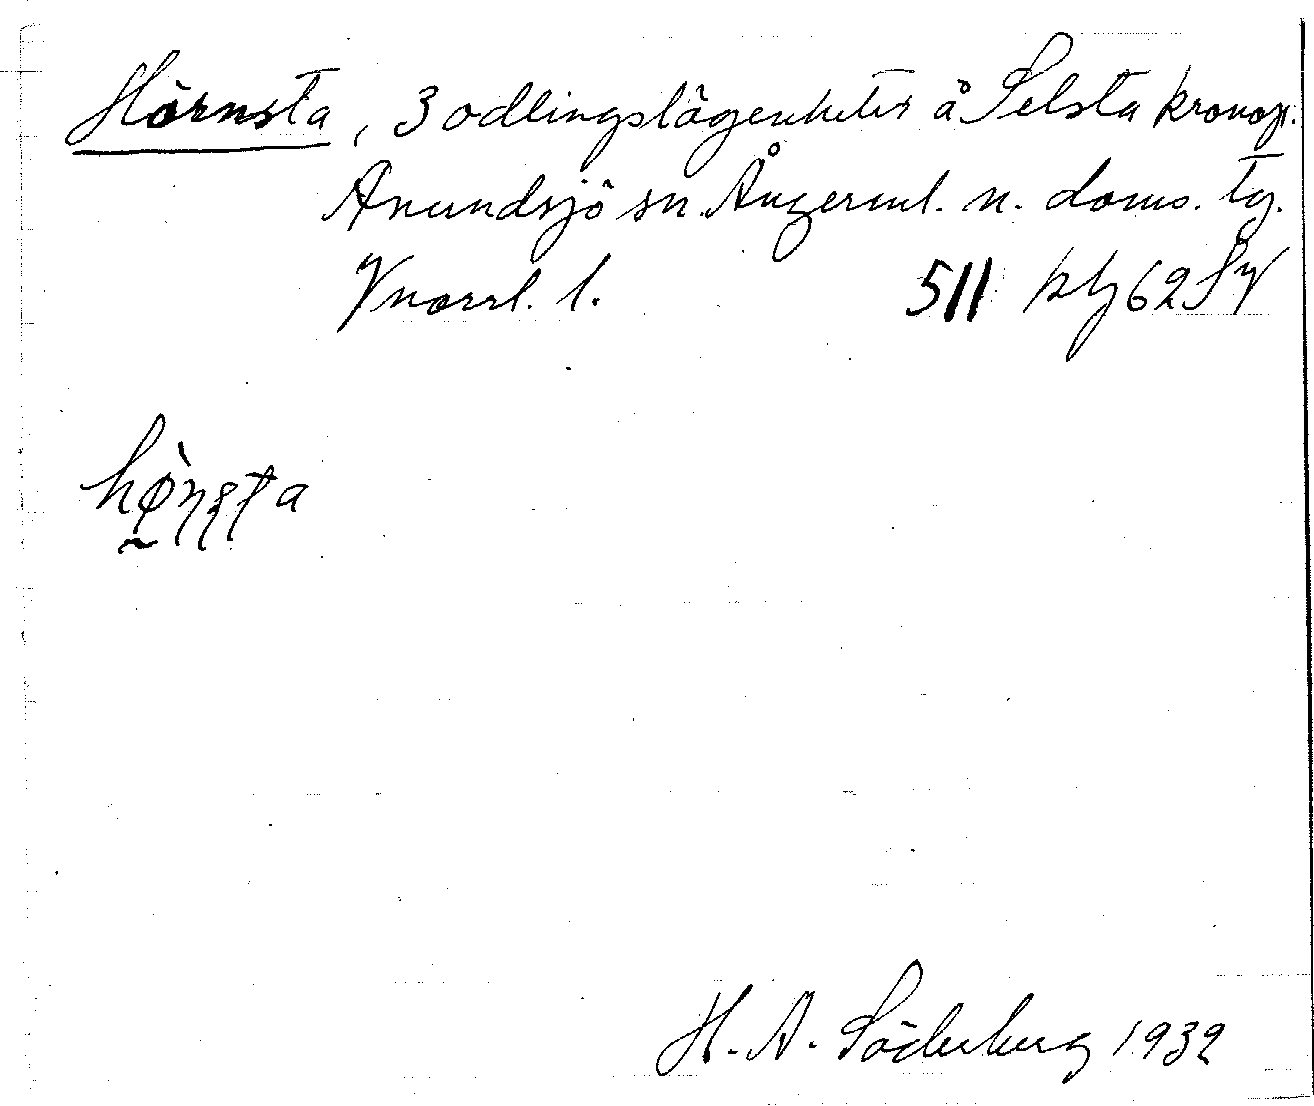 Hörnsta, 3 odlingslägenheter å Selsta kronop.
Anundsjö sn. Ångerml. n. doms. tg.
Vnorrl. l. 511 kbl 62 Sv
hö̀ṇṣṭa
H. A. Söderberg 1932